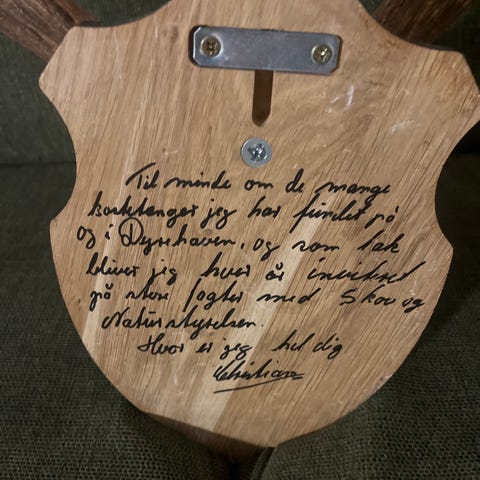 Til minde om de mange
jeg har fundet på
og i Dyrehaven, og som tak
bliver jeg hver år inviteret
på store jagter med Skov og
Naturstyrelsen.
Hvor er jeg hel dig
Christian